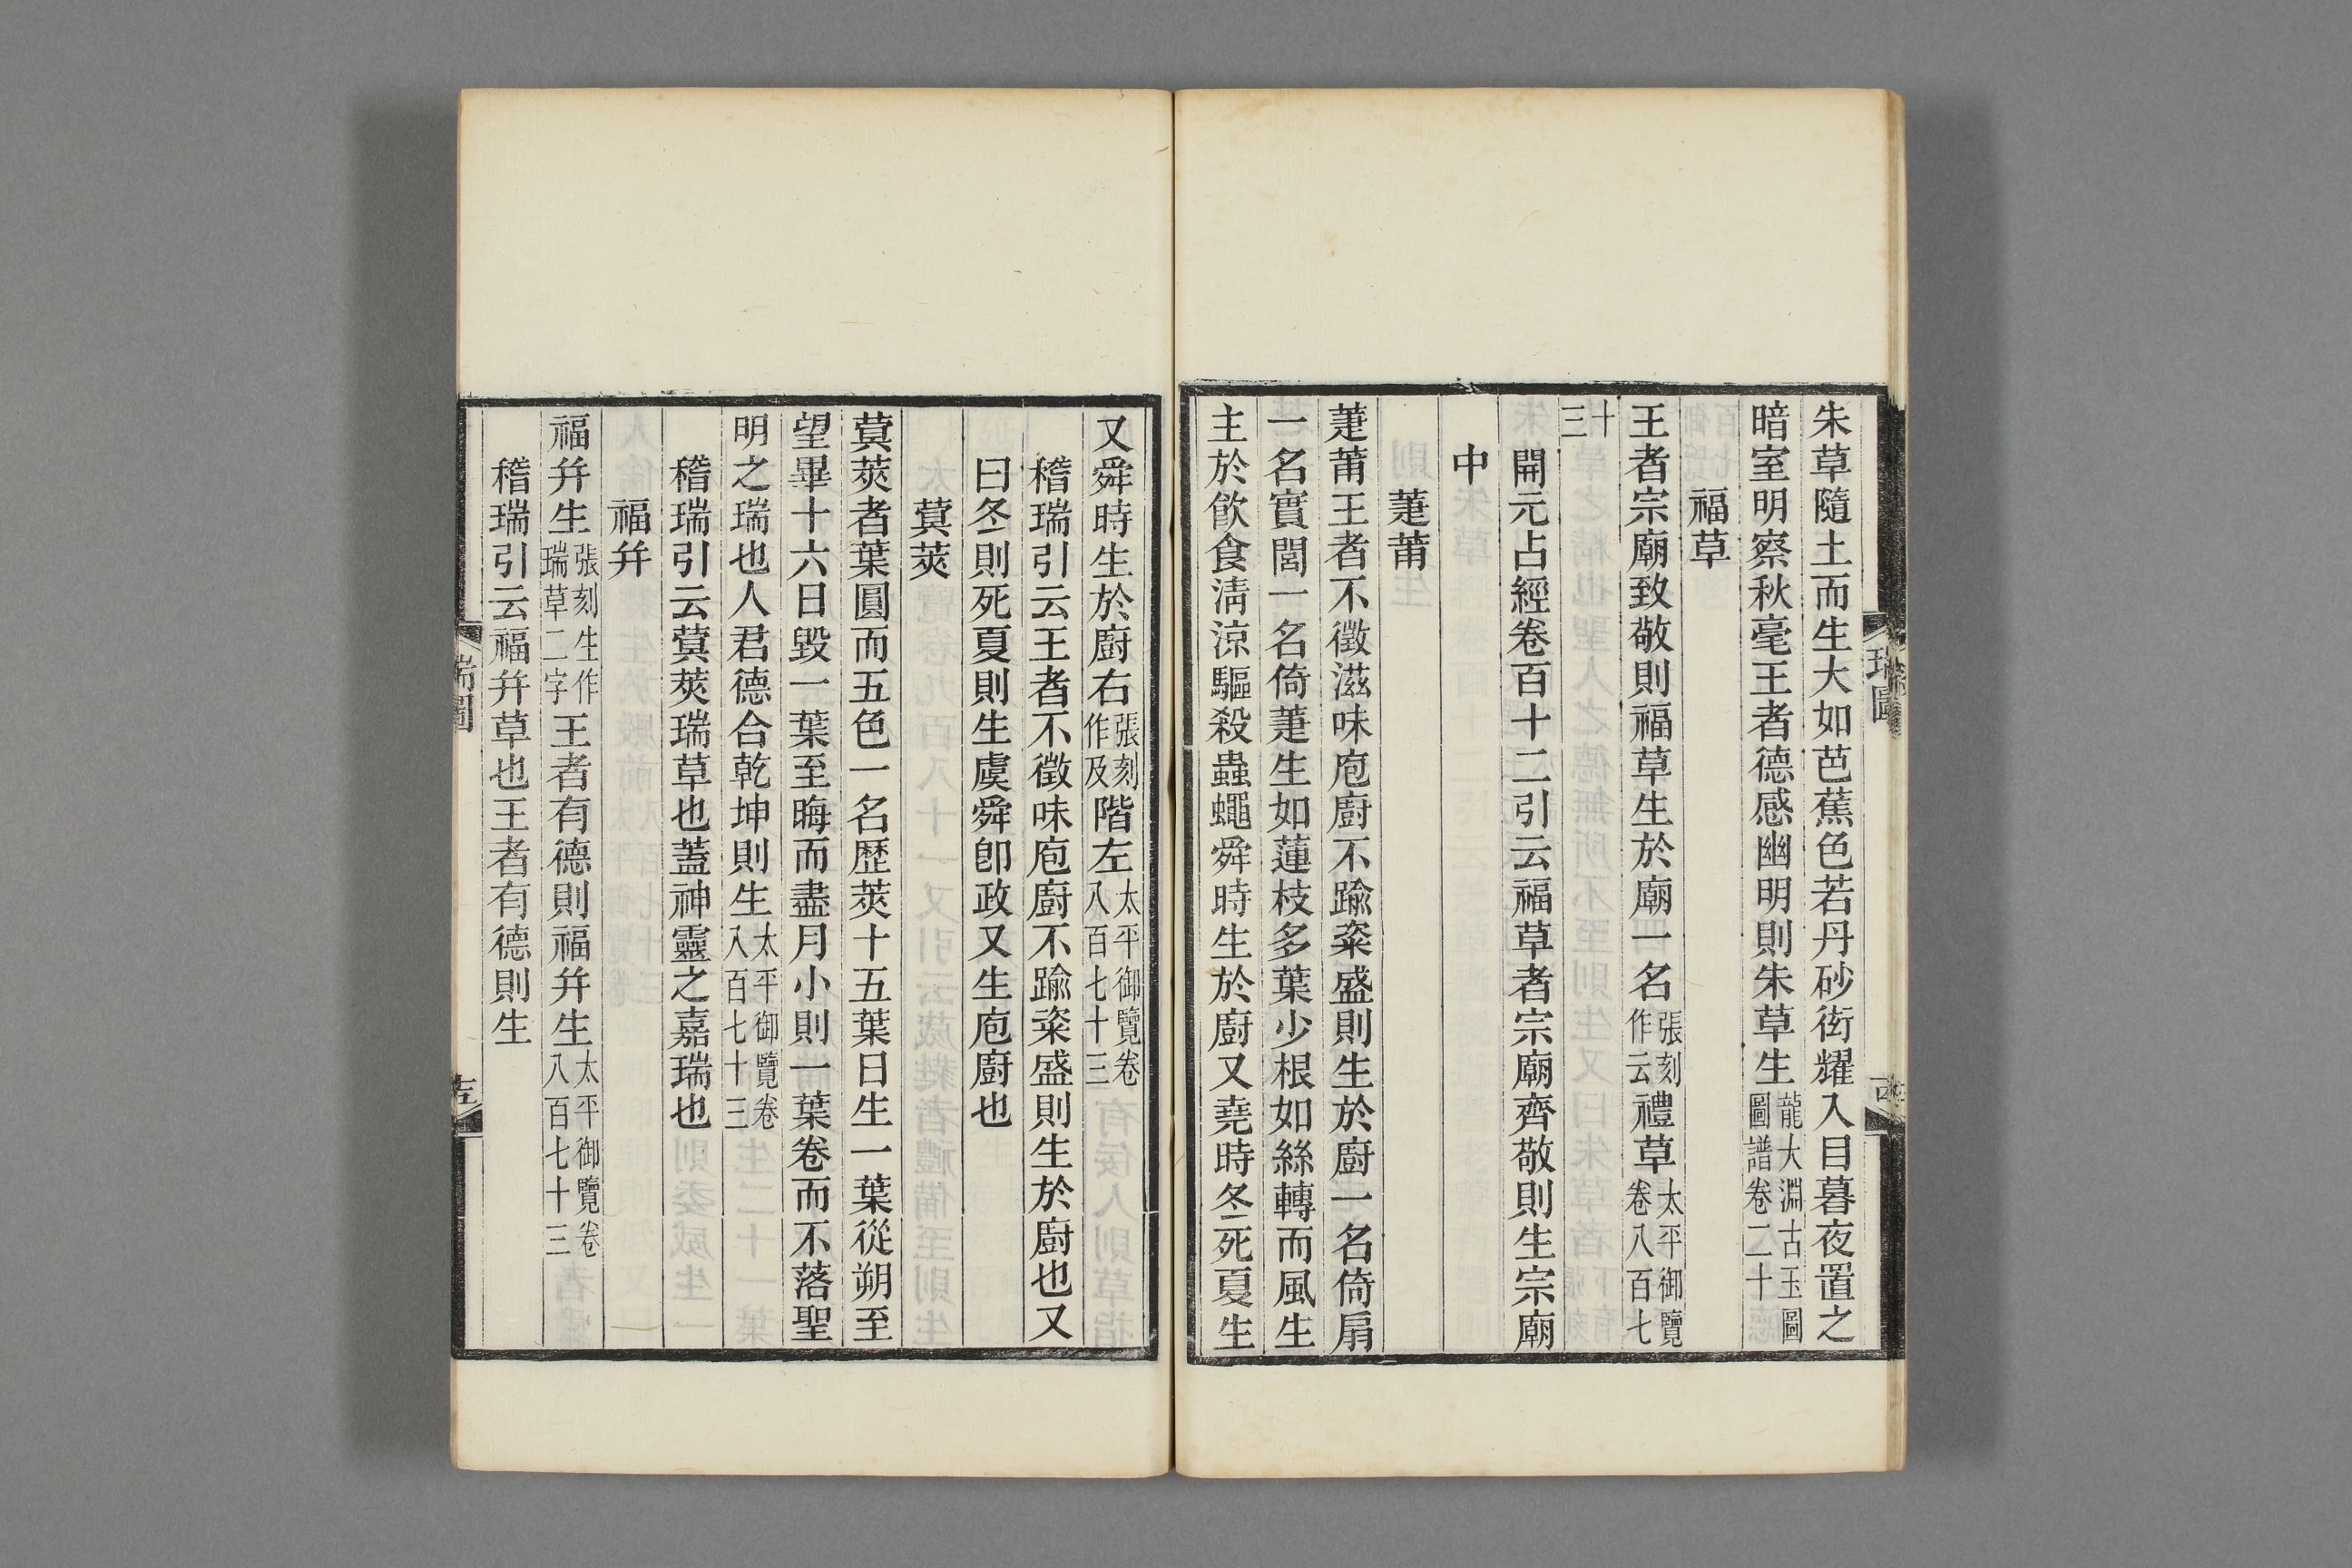 朱草隨土而生大如芭蕉色若丹砂衒耀入目暮夜置之
暗室明察秋毫王者德感幽明則朱草生龍大淵古玉圖圖譜卷二十
福草
王者宗廟致敬則福草生於廟一名張刻作云禮草太平御覽卷八百七
十三
開元占經卷百十二引云福草者宗廟齊敬則生宗廟
中
萐莆
萐莆王者不徵滋味庖廚不踰粢盛則生於廚一名倚扇
一名實閭一名倚萐生如蓮枝多葉少根如絲轉而風生
主於飲食淸涼驅殺蟲蠅舜時生於廚又堯時冬死夏生
又舜時生於廚右張刻作及階左太平御覽卷八百七十三
稽瑞引云王者不徵味庖廚不踰粢盛則生於廚也又
曰冬則死夏則生虞舜卽政又生庖廚也
蓂莢
蓂莢者葉圓而五色一名歷莢十五葉日生一葉從朔至
望畢十六日毀一葉至晦而盡月小則一葉卷而不落聖
明之瑞也人君德合乾坤則生太平御覽卷八百七十三
稽瑞引云蓂莢瑞草也蓋神靈之嘉瑞也
福幷
福幷生張刻生作瑞草二字王者有德則福幷生太平御覽卷八百七十三
稽瑞引云福幷草也王者有德則生
瑞圖